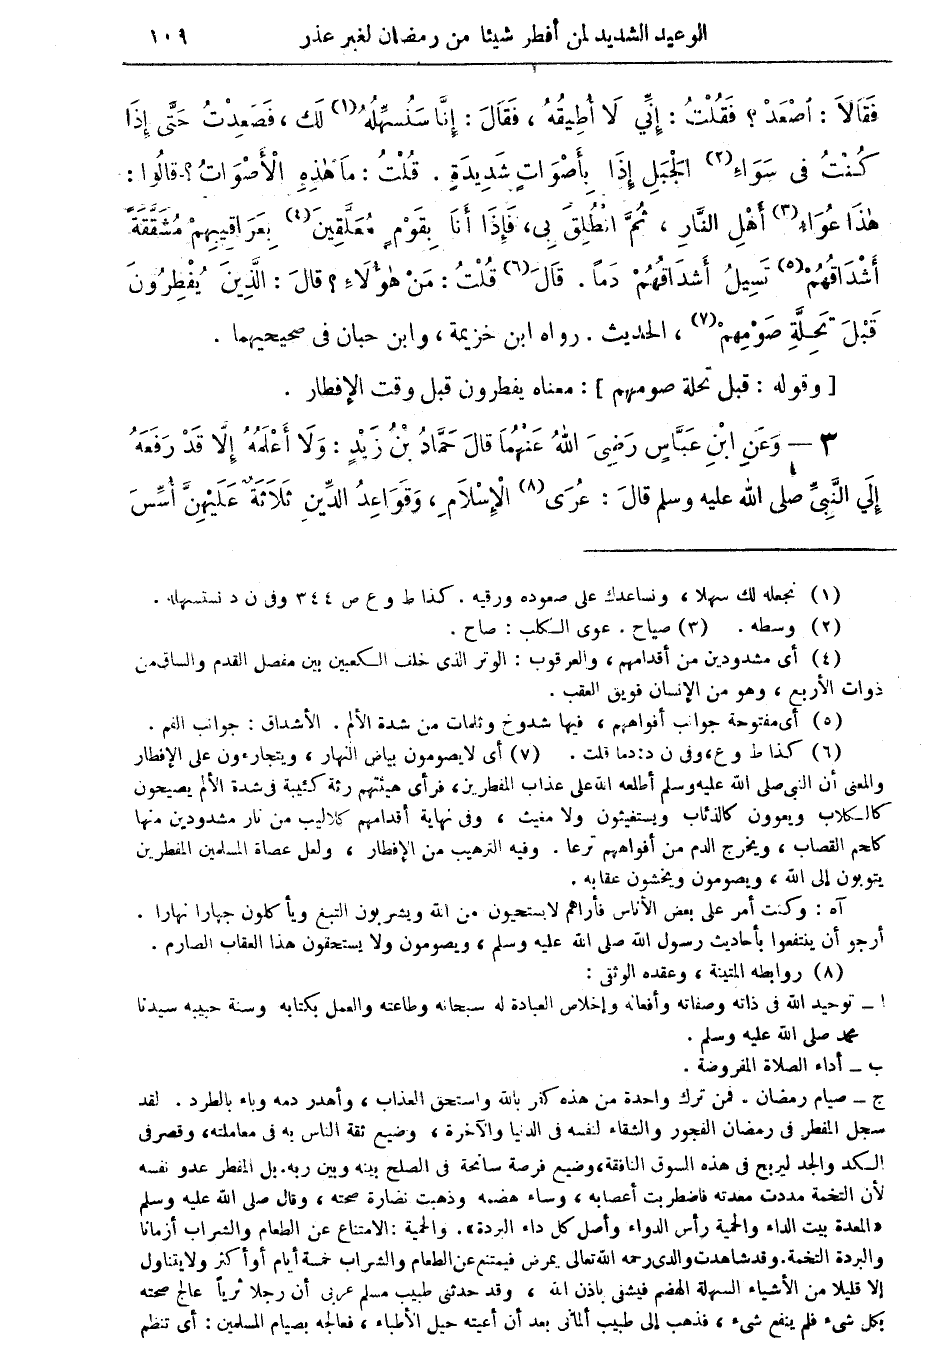 الوعيد الشديد لمن أفطر شيئا من رمضان لغير عذر ١٠٩
فَقَالَا : اصْعَدْ ؟ فَقُلْتُ : إِنِّي لَا أُطِيقُهُ ، فَقَالَ : إِنَّا سَنُسَهِّلُهُ (١) لَكَ ، فَصَعِدْتُ حَتَّى إِذَا
كُنْتُ فِى سَوَاءِ (٢) الْجَبَلِ إِذَا بِأَصْوَاتٍ شَدِيدَةٍ . قُلْتُ : مَا هٰذِهِ الْأَصْوَاتُ ؟ قالُوا :
هٰذَا عُوَاءُ (٣) أَهْلِ النَّارِ ، ثُمَّ انْطُلِقَ بِى ، فَإِذَا أَنَا بِقَوْمٍ مُعَلَّقِينَ (٤) بِعَرَاقِيبِهِمْ مُشَقَّقَةً
أَشْدَاقُهُمْ (٥) تَسِيلُ أَشْدَاقُهُمْ دَماً . قَالَ (٦) قُلْتُ : مَنْ هٰؤُلَاءِ ؟ قالَ : الَّذِينَ يُفْطِرُونَ
قَبْلَ تَحِلَّةِ صَوْمِهِمْ (٧) ، الحديث . رواه ابن خزيمة ، وابن حبان فى صحيحيهما .
[ وقوله : قبل تحلة صومهم ] : معناه يفطرون قبل وقت الإفطار .
٣ — وَعَنِ ابْنِ عَبَّاسٍ رَضِىَ اللهُ عَنْهُمَا قالَ حَمَّادُ بْنُ زَيْدٍ : وَلَا أَعْلَمُهُ إِلَّا قَدْ رَفَعَهُ
إِلَي النَّبِيِّ صلى الله عليه وسلم قالَ : عُرَى (٨) الْإِسْلَامِ ، وَقَوَاعِدُ الدِّينِ ثَلَاثَةٌ عَلَيْهِنَّ أُسِّسَ
(١) نجعله لك سهلا ، ونساعدك على صعوده ورقيه . كذا ط و ع ص ٣٤٤ وفى ن د نستسهله .
(٢) وسطه . (٣) صياح . عوى الكلب : صاح .
(٤) أى مشدودين من أقدامهم ، والعرقوب : الوتر الذى خلف الكعبين بين مفصل القدم والساق من
ذوات الأربع ، وهو من الإنسان فويق العقب .
(٥) أى مفتوحة جوانب أفواههم ، فيها شدوخ وثلمات من شدة الألم . الأشداق : جوانب الفم .
(٦) كذا ط و ع ، وفى ن د : دما قلت . (٧) أى لايصومون بياض النهار ، ويتجارءون على الإفطار
والمعنى أن النبى صلى الله عليه وسلم أطلعه الله على عذاب المفطرين ، فرأى هيئتهم رثة كئيبة فى شدة الألم يصيحون
كالكلاب ويعوون كالذئاب ويستغيثون ولا مغيث ، وفى نهاية أقدامهم كلاليب من نار مشدودين منها
كلحم القصاب ، ويخرج الدم من أفواههم ترعا . وفيه الترهيب من الإفطار ، ولعل عصاة المسلمين المفطرين
يتوبون إلى الله ، ويصومون ويخشون عقابه .
آه : وكنت أمر على بعض الأناس فأراهم لايستحيون من الله ويشربون التبغ ويأكلون جهارا نهارا .
أرجو أن ينتفعوا بأحاديث رسول الله صلى الله عليه وسلم ، ويصومون ولا يستحقون هذا العقاب الصارم .
(٨) روابطه المتينة ، وعقده الوثقى :
ا ــ توحيد الله فى ذاته وصفاته وأفعاله وإخلاص العبادة له سبحانه وطاعته والعمل بكتابه وسنة حبيبه سيدنا
محمد صلى الله عليه وسلم .
ب ــ أداء الصلاة المفروضة .
ج ــ صيام رمضان . فمن ترك واحدة من هذه كفر بالله واستحق العذاب ، وأهدر دمه وباء بالطرد . لقد
سجل المفطر فى رمضان الفجور والشقاء لنفسه فى الدنيا والآخرة ، وضيع ثقة الناس به فى معاملته ، وقصر فى
الكد والجد ليربح فى هذه السوق النافقة ، وضيع فرصة سانحة فى الصلح بينه وبين ربه . بل المفطر عدو نفسه
لأن التخمة مددت معدته فاضطربت أعصابه ، وساء هضمه وذهبت نضارة صحته ، وقال صلى الله عليه وسلم
«المعدة بيت الداء والحمية رأس الدواء وأصل كل داء البردة» . والحمية : الامتناع عن الطعام والشراب أزمانا
والبردة التخمة . وقد شاهدت والدى رحمه الله تعالى يمرض فيمتنع عن الطعام والشراب خمسة أيام أو أكثر ولايتناول
إلا قليلا من الأشياء السهلة الهضم فيشفى باذن الله ، وقد حدثنى طبيب مسلم عربى أن رجلا ثرياً عالج صحته
بكل شىء فلم ينفع شىء ، فذهب إلى طبيب ألمانى بعد أن أعيته حيل الأطباء ، فعالجه بصيام المسلمين : أى تنظم